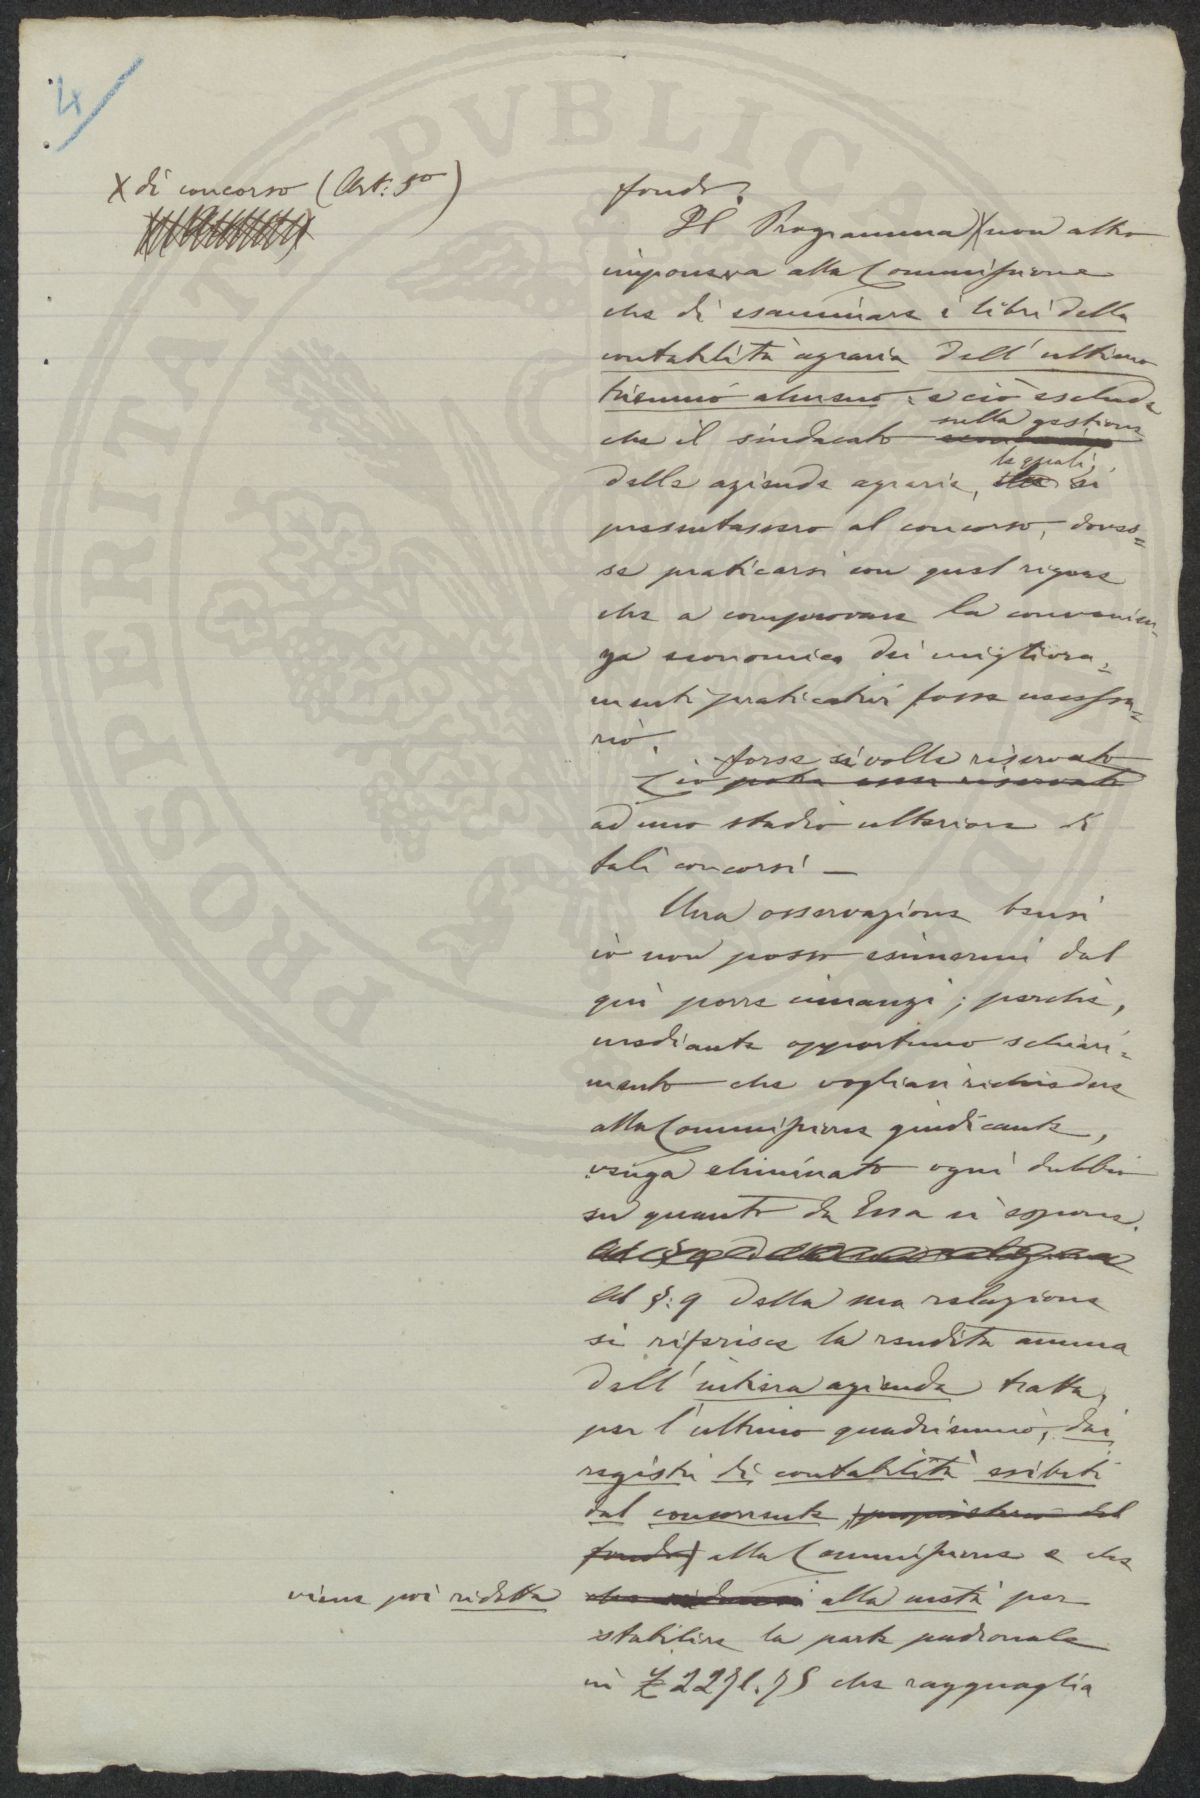 4
X di concorso (Art: 5º)
fondo.
Il Programma X non altro
imponeva alla Commissione
che di esaminare i libri della
contabilità agraria dell'ultimo
triennio almeno; e ciò esclude
che il sindacato
sulla gestione
delle aziende agrarie,
le quali
si
presentassero al concorso, doves=
se praticarsi con quel rigore
che a comprovare la convenien-
za economica dei migliora=
menti praticativi fosse necessa=
rio.
forse si volle riservato
Ciò potea esser riservato
ad uno studio ulteriore di
tali concorsi —
Una osservazione bensì
io non posso esimermi dal
quì porre innanzi; perchè,
mediante opportuno schiari=
mento che vogliasi richiedere
alla Commissione giudicante,
venga eliminato ogni dubbio
su quanto da Essa si espone.
Al §: 9 della sua relazione
si riferisce la rendita annua
dell'intiera azienda tratta,
per l'ultimo quadriennio, dai
registri di contabilità esibiti
dal concorrente (proprietario del
fondo) alla Commissione e che
viene poi ridotta
alla metà per
stabilire la parte padronale
in £ 2271.75 che ragguaglia
PROSPERITAS PVBLICA